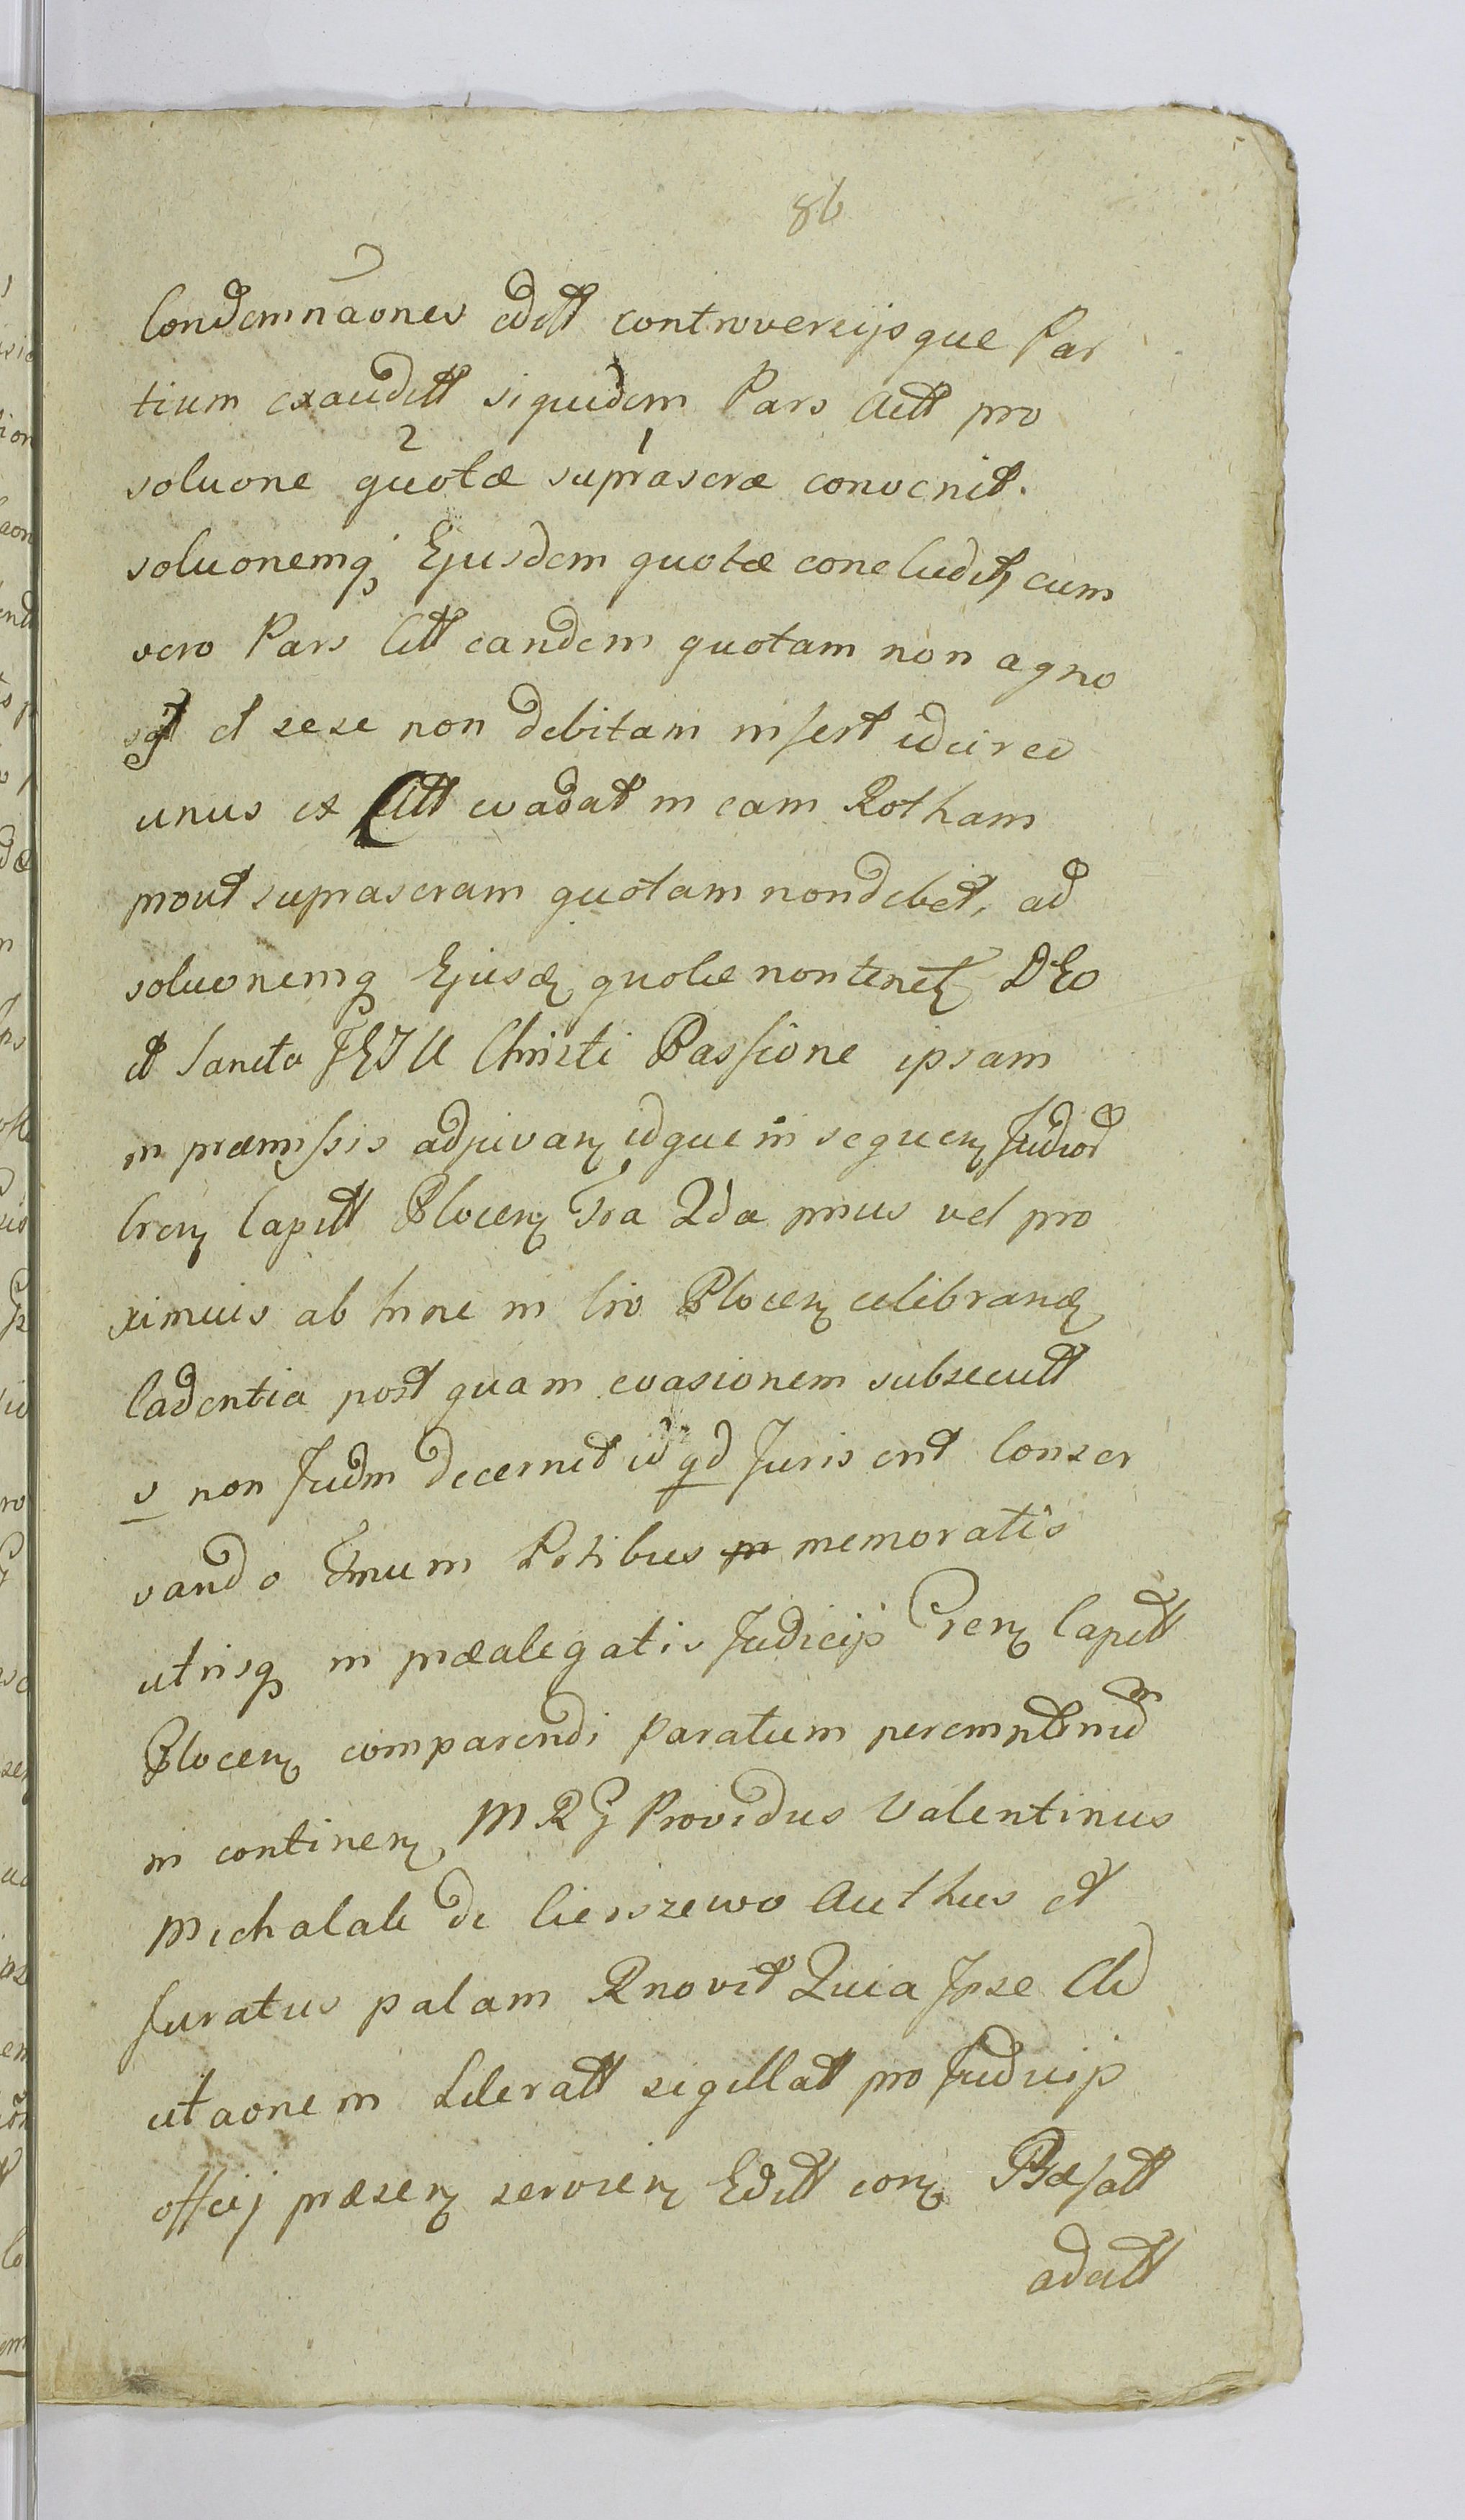 86
Condemnaones edtt controversijsque Par
tium exauditt siquidem Pars Actt pro
2 1
soluone quotæ suprascræ convenit.
soluonemq Ejusdem quotæ concludit cum
vero Pars Citt eandem quotam non agno
et sese non debitam infert idcirco
unus ex Citt evadat in eam Rotham
prout suprascram quotam non debet, ad
soluonemq Ejusd quotæ non tenet DEo
et Sancta JESU Christi Passione ipsam
in præmissis adjuvan idque in sequen Judior
Cren Capitt Plocen Fra 2da prius vel pro
ximius ab hinc in Cro Plocen celebrand
Cadentia post quam evasionem subsecutt
v non Judm decernet id qd Juris erit Conser
vando Tmum Prtibus memoratis
utrisq in præalegatis Judicijs Cren Capitt
Plocen comparendi paratum
in continen MRG Providus Valentinus
Michalak de Cierszewo Authus et
Juratus palam Rnovit Quia Ipse Cit
utaonem Literatt sigillatt pro Judicijs
officij præsen servien Editt con Præfatt
adcitt